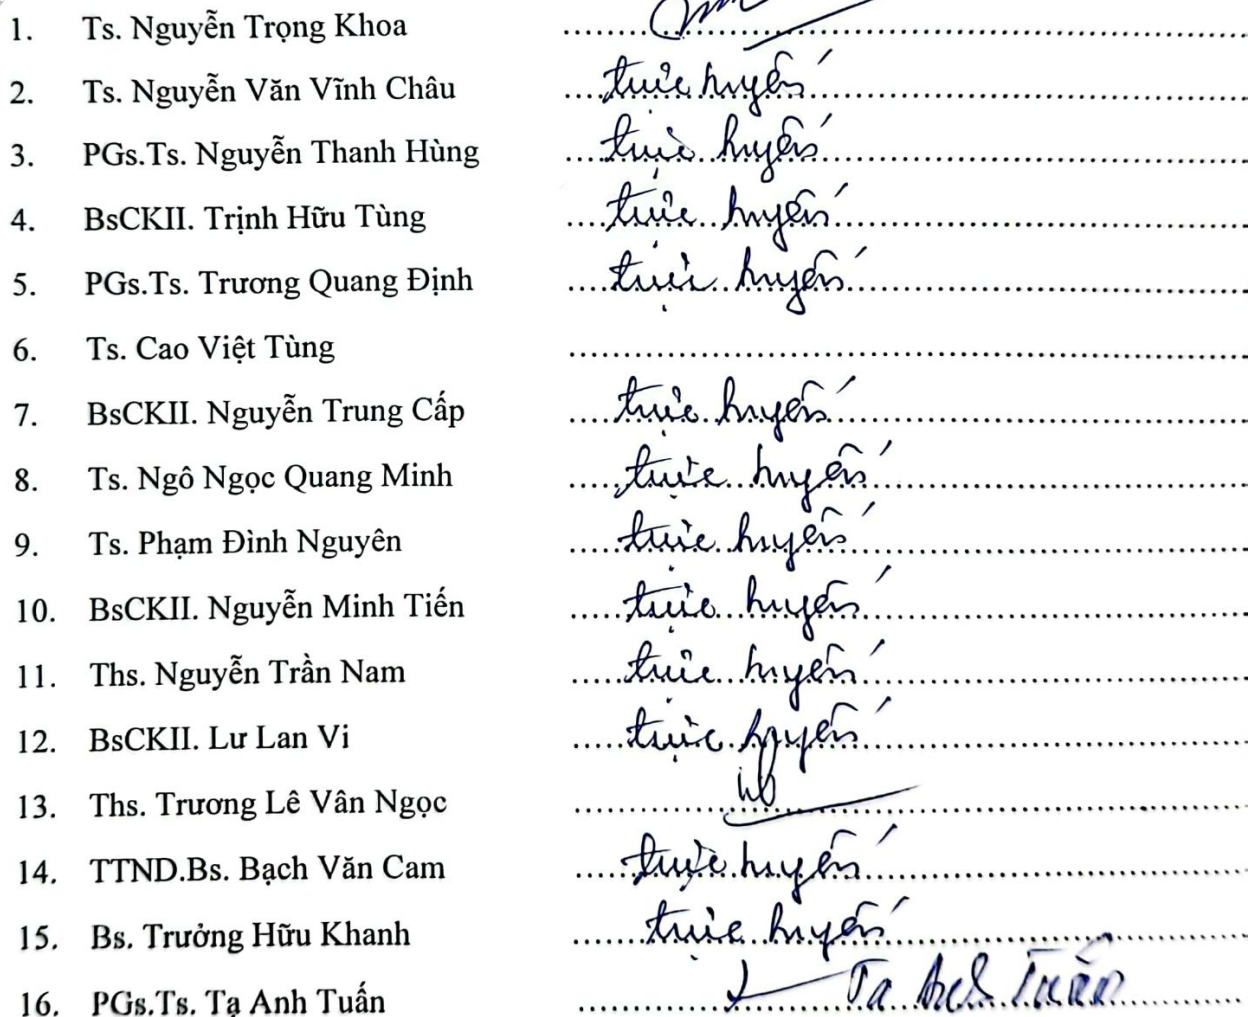 1. Ts. Nguyễn Trọng Khoa
2. Ts. Nguyễn Văn Vĩnh Châu trực tuyến
3. PGs.Ts. Nguyễn Thanh Hùng trực tuyến
4. BsCKII. Trịnh Hữu Tùng trực tuyến
5. PGs.Ts. Trương Quang Định trực tuyến
6. Ts. Cao Việt Tùng
7. BsCKII. Nguyễn Trung Cấp trực tuyến
8. Ts. Ngô Ngọc Quang Minh trực tuyến
9. Ts. Phạm Đình Nguyên trực tuyến
10. BsCKII. Nguyễn Minh Tiến trực tuyến
11. Ths. Nguyễn Trần Nam trực tuyến
12. BsCKII. Lư Lan Vi trực tuyến
13. Ths. Trương Lê Vân Ngọc
14. TTND.Bs. Bạch Văn Cam trực tuyến
15. Bs. Trưởng Hữu Khanh trực tuyến
16. PGs.Ts. Tạ Anh Tuấn Tạ Anh Tuấn